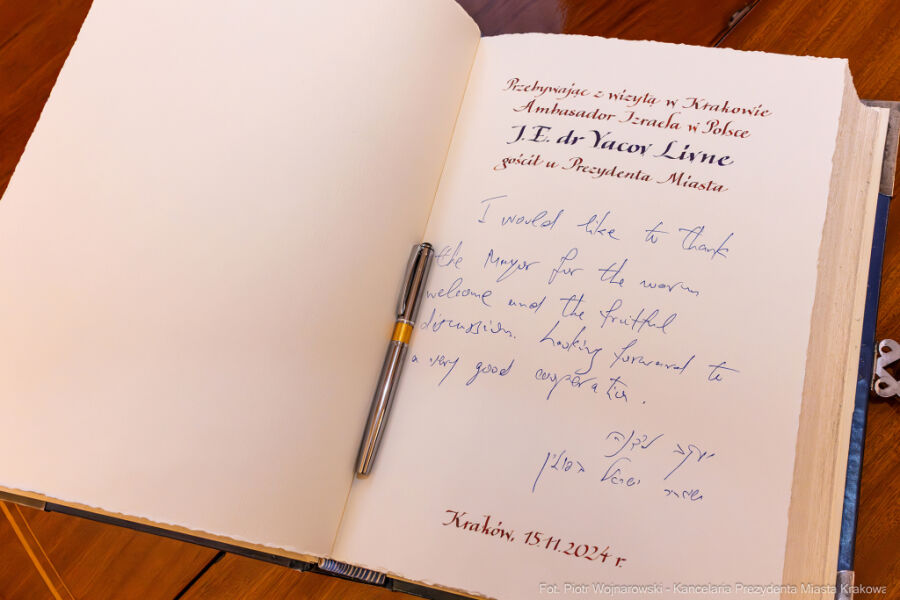 Przebywając z wizytą w Krakowie
Ambasador Izraela w Polsce
J.E. dr Yacov Livne
gościł u Prezydenta Miasta
I would like to thank
the Mayor for the warm
welcome and the fruitful
discussion. Looking forward to
a very good cooperation.
יעקב לבנה
שגריר ישראל בפולין
Kraków, 15.11.2024 r.
Fot. Piotr Wojnarowski - Kancelaria Prezydenta Miasta Krakowa